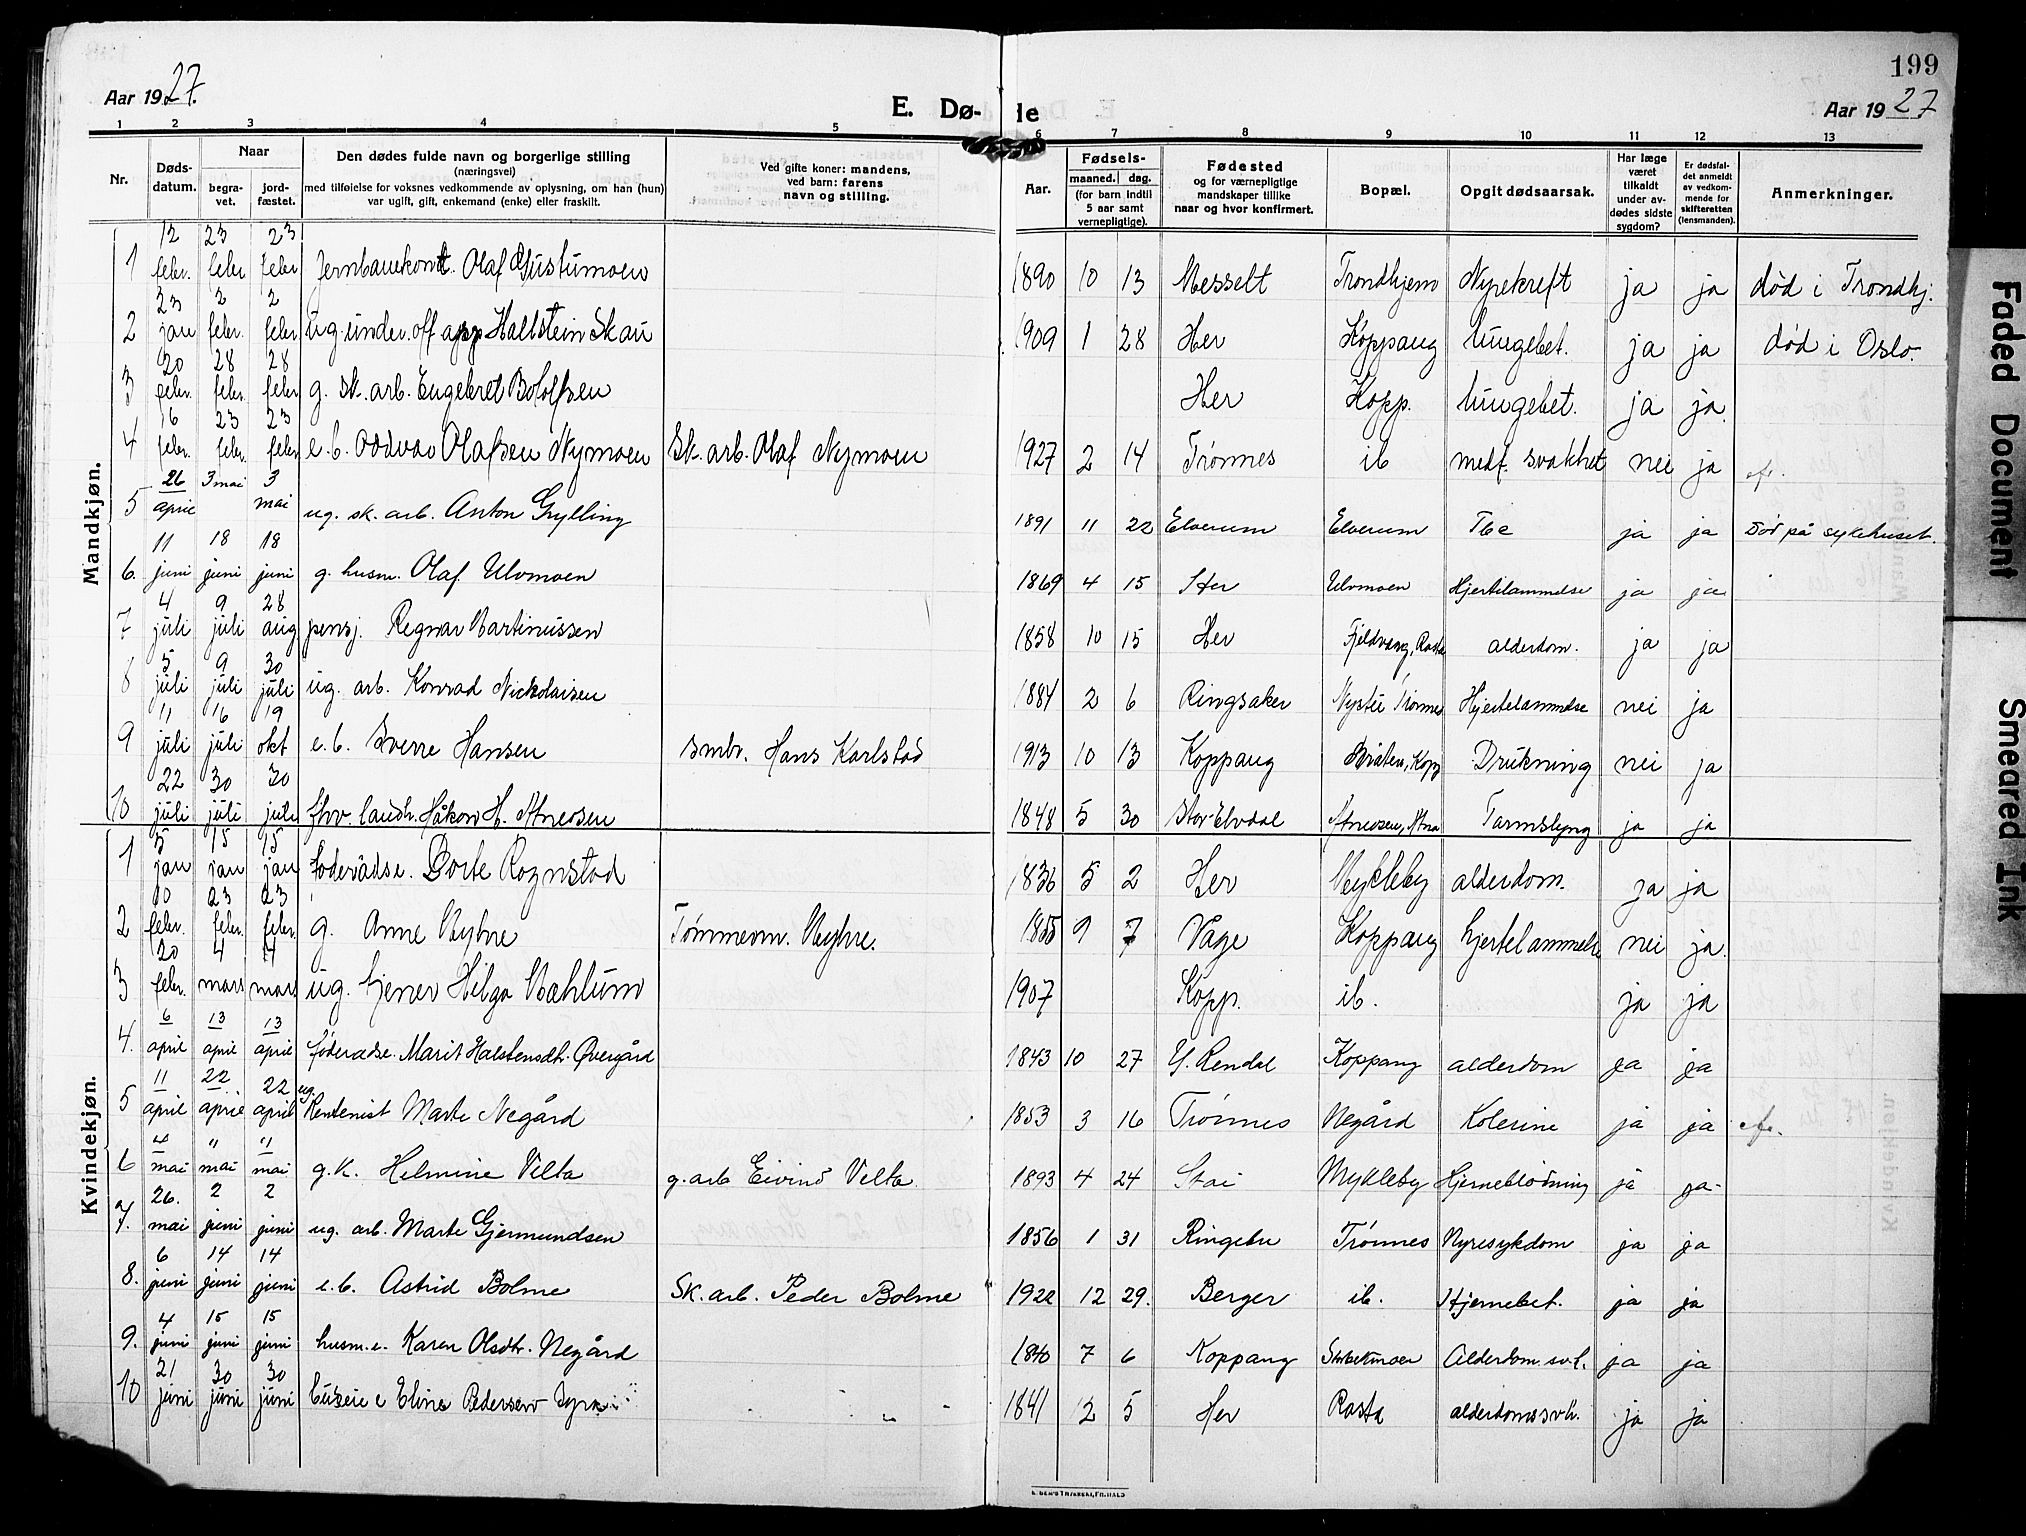 199
Aar 1927.
E. Dø-
de
Aar 1927
1 2 3 4 5 6 7 8 9 10 11 12 13
Nr.
Dødsdatum.
Naar
begravet.
jordfæstet.
Den dødes fulde navn og borgerlige stilling
(næringsvei)
med tilføielse for voksnes vedkommende av oplysning, om han (hun)
var ugift, gift, enkemand (enke) eller fraskilt.
Ved gifte koner: mandens,
ved barn: farens
navn og stilling.
Aar.
Fødsels-
maaned. dag.
(for barn indtil
5 aar samt
vernepligtige).
Fødested
og for værnepligtige
mandskaper tillike
naar og hvor konfirmert.
Bopæl.
Opgit dødsaarsak.
Har læge
været
tilkaldt
under av-
dødes sidste
sygdom?
Er dødsfal-
det anmeldt
av vedkom-
mende for
skifteretten
(lensmanden).
Anmerkninger.
Mandkjøn.
1 12 febr. 23 febr 23 febr Jernbanekont. Olaf Gustumoen 1890 10 13 Messelt Trondhjem Nyrekreft ja ja død i Trondhj.
2 23 jan 2 febr. 2 febr. ug. under.off app Hallstein Skau 1909 1 28 Her Koppang lungebet. ja ja død i Oslo.
3 20 febr. 28 febr. 28 febr g. sk. arb. Engebret Bololfsen Her Kopp. lungebet. ja ja.
4 16 febr. 23 febr. 23 febr. e. b. Oddvar Olafsen Nymoen Sk. arb. Olaf Nymoen 1927 2 14 Trønnes ib medf. svakhet nei ja
5 26 april 3 mai 3 mai ug. sk. arb. Anton Grylling 1891 11 22 Elverum Elverum Tbc ja ja Død på sykehuset.
6. 11 juni 18 juni 18 juni g. husm. Olaf Ulvmoen 1869 4 15 Her Ulvmoen Hjertelammelse ja ja
7 4 juli 9 juli 28 aug pensj. Regnar Martinussen 1858 10 15 Her Fjeldvang, Rasta alderdom. ja ja
8 5 juli 9 juli 30 juli ug. arb. Konrad Nickolaisen 1884 2 6 Ringsaker Nystu Trønnes Hjertelammelse nei ja
9 11 juli 16 juli 19 okt e. b. Sverre Hansen smbr. Hans Karlstad 1913 10 13 Koppang Bråten, Kopp Drukning nei ja
10 22 juli 30 juli 30 juli fhv. landh. Håkon H. Atneosen 1848 5 30 Stor-Elvdal Atneosen, Atna Tarmslyng ja ja
Kvindekjøn.
1 5 jan 15 jan 15 jan foderådse. Dorte Rognstad 1836 5 2 Her Mykleby alderdom. ja ja
2 10 febr. 23 febr. 23 febr. g. Anne Myhre Tømmerm. Myhre. 1855 9 7 Våge Koppang hjertelammelse nei ja.
3 20 febr. 4 mars 4 mars ug. tjener Helga Mæhlum 1907 Kopp. ib. ja ja
4. 6 april 13 april 13 april føderådse. Marit Halstensdtr. Øvergård 1843 10 27 Y. Rendal Koppang alderdom ja ja
5 11 april 22 april 22 april ug. Rentenist Marte Negård 1853 3 16 Trønnes Negård Kolerine ja ja
6 4 mai " mai 11 mai g. K. Helmine Velta g. arb Eivind Velta 1893 4 24 Stai Mykleby Hjerneblødning ja ja
7. 26. mai 2 juni 2 juni ug. arb. Marte Gjermundsen 1856 1 31 Ringebu Trønnes Nyresykdom ja ja
8. 6 juni 14 juni 14 juni e. b. Astrid Bolme Sk. arb. Peder Bolme 1922 12 29. Berger ib. Hjernebet. ja ja
9. 4 juni 15 juni 15 juni husm. e. Karen Olsdtr. Negård 1840 7 6 Koppang Alderdom sv.h. ja ja
10 21 juni 30 juni 30 juni e Eline Pedersen 1841 2 5 Her Rasta alderdomssvh. ja ja
Faded Document
Smeared Ink